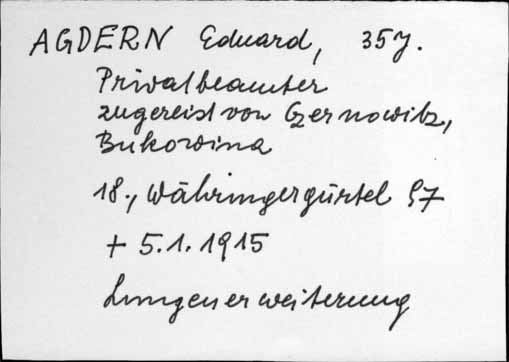 AGDERN Eduard, 35J.
Privatbeamter
zugereist von Czernowitz,
Bukowina
18., Währingergürtel 97
+ 5.1.1915
Lungenerweiterung